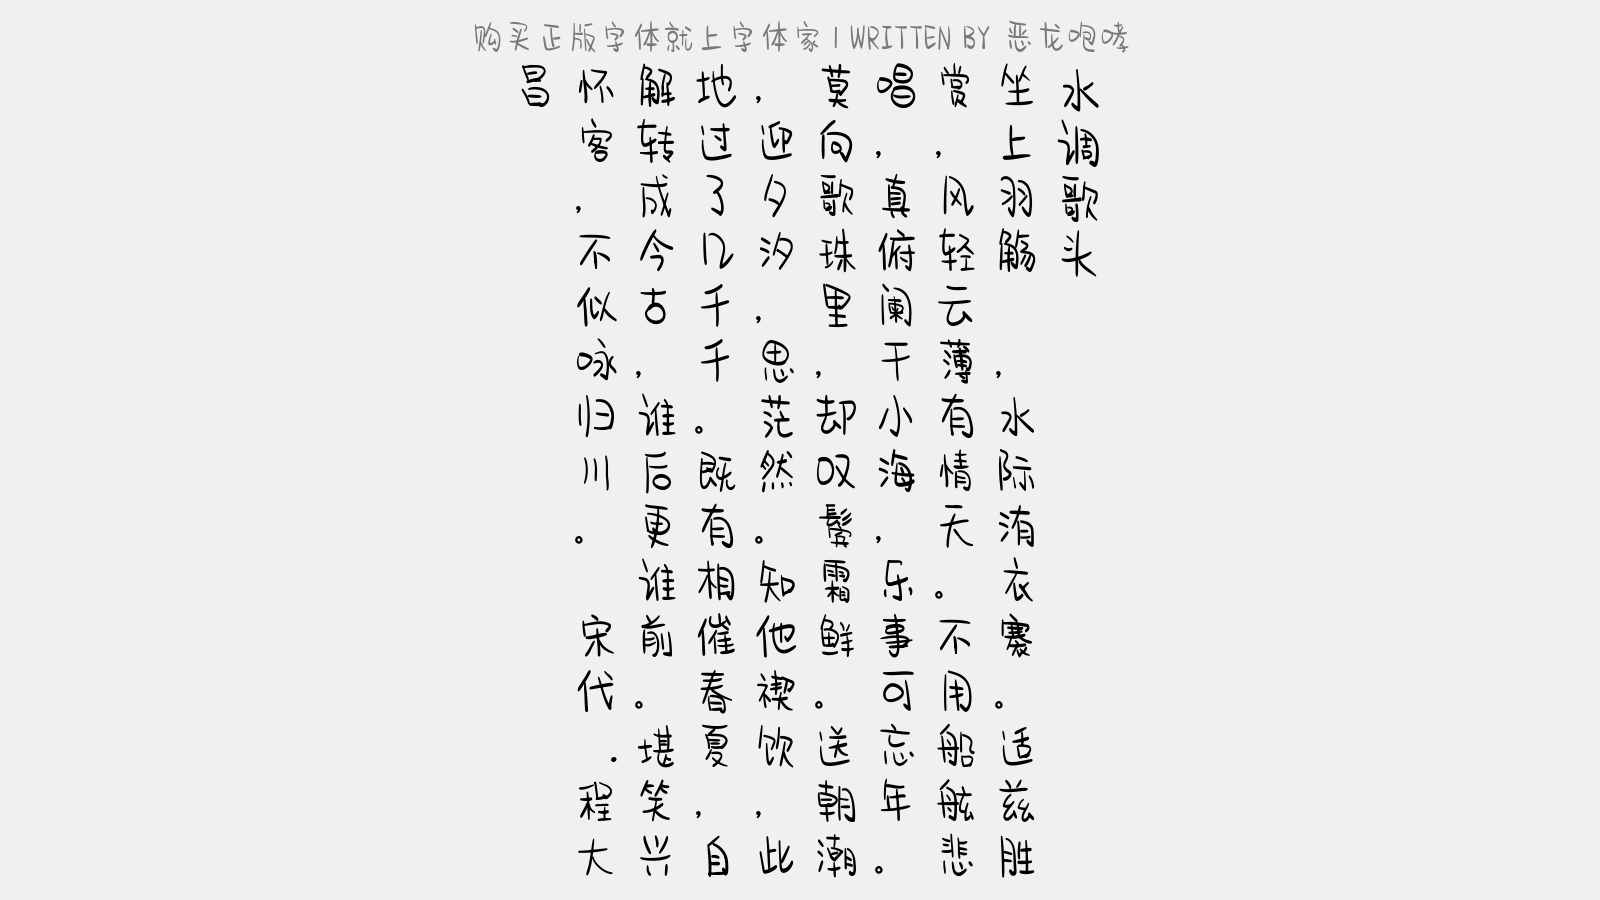 购买正版字体就上字体家 | WRITTEN BY 恶龙咆哮
水调歌头
坐上羽觞 ，水际洧衣褰。适兹胜
赏，风轻云薄有情天。不用船舷悲
唱，真俯阑干小海，乐事可忘年。
莫向歌珠里，却叹鬓霜鲜。送朝潮
，迎夕汐，思茫然。知他禊饮，此
地过了几千千。既有相催春夏，自
解转成今古，谁后更谁前。堪笑兴
怀客，不似咏归川。 宋代 . 程大
昌